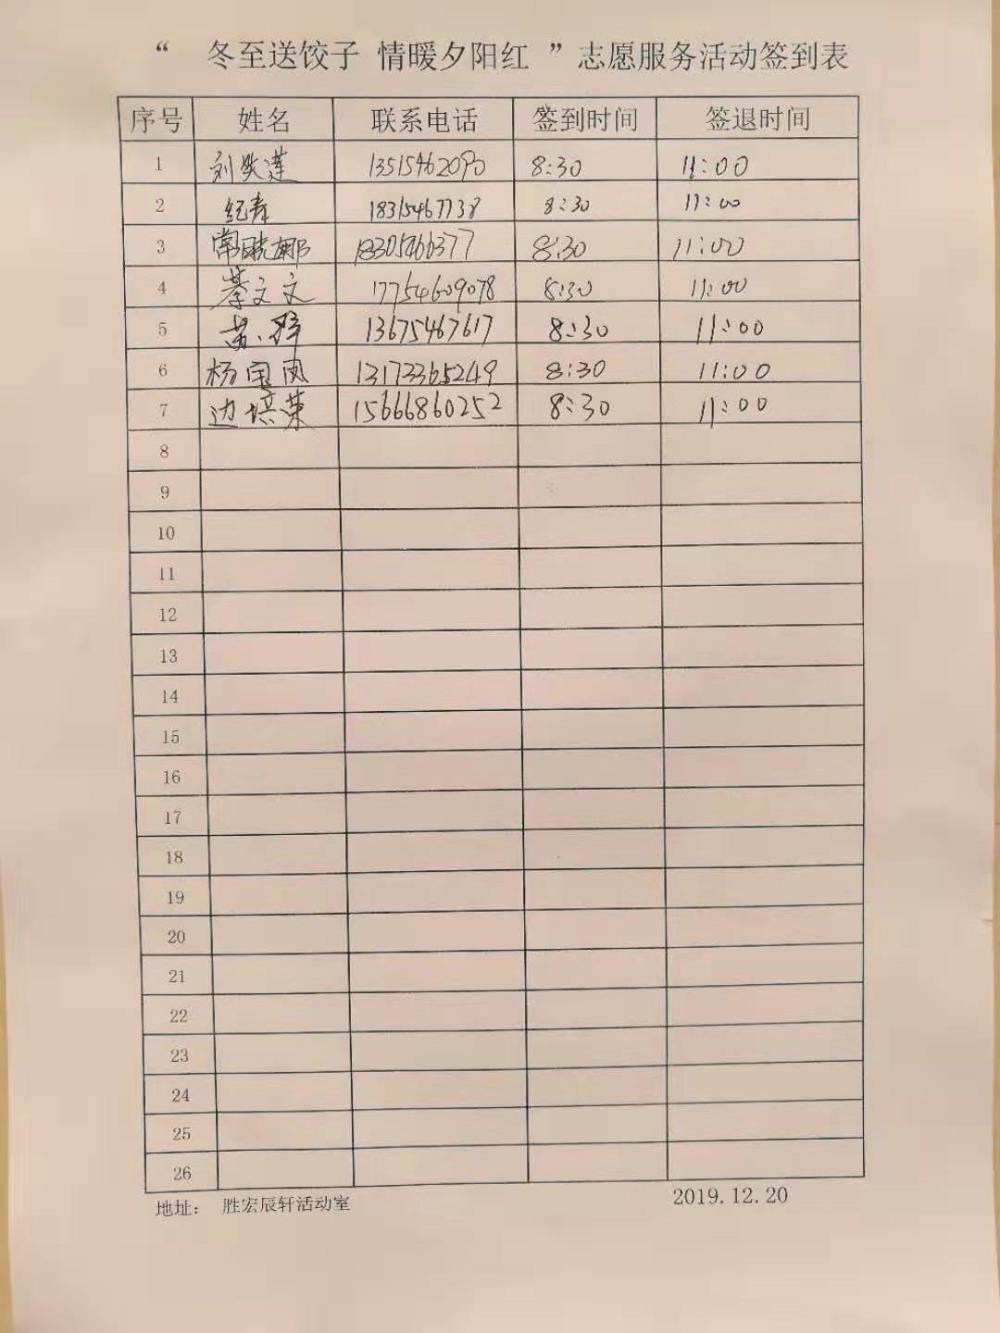 “ 冬至送饺子 情暖夕阳红 ”志愿服务活动签到表
序号 姓名 联系电话 签到时间 签退时间
1 刘 莲 13515462090 8:30 11:00
2 纪青 18315467738 8:30 11:00
3 常晓娜 18305466377 8:30 11:00
4 綦文文 17754609078 8:30 11:00
5 13675467617 8:30 11:00
6 杨宝凤 13173365249 8:30 11:00
7 边培荣 15666860252 8:30 11:00
8
9
10
11
12
13
14
15
16
17
18
19
20
21
22
23
24
25
26
地址： 胜宏辰轩活动室 2019.12.20